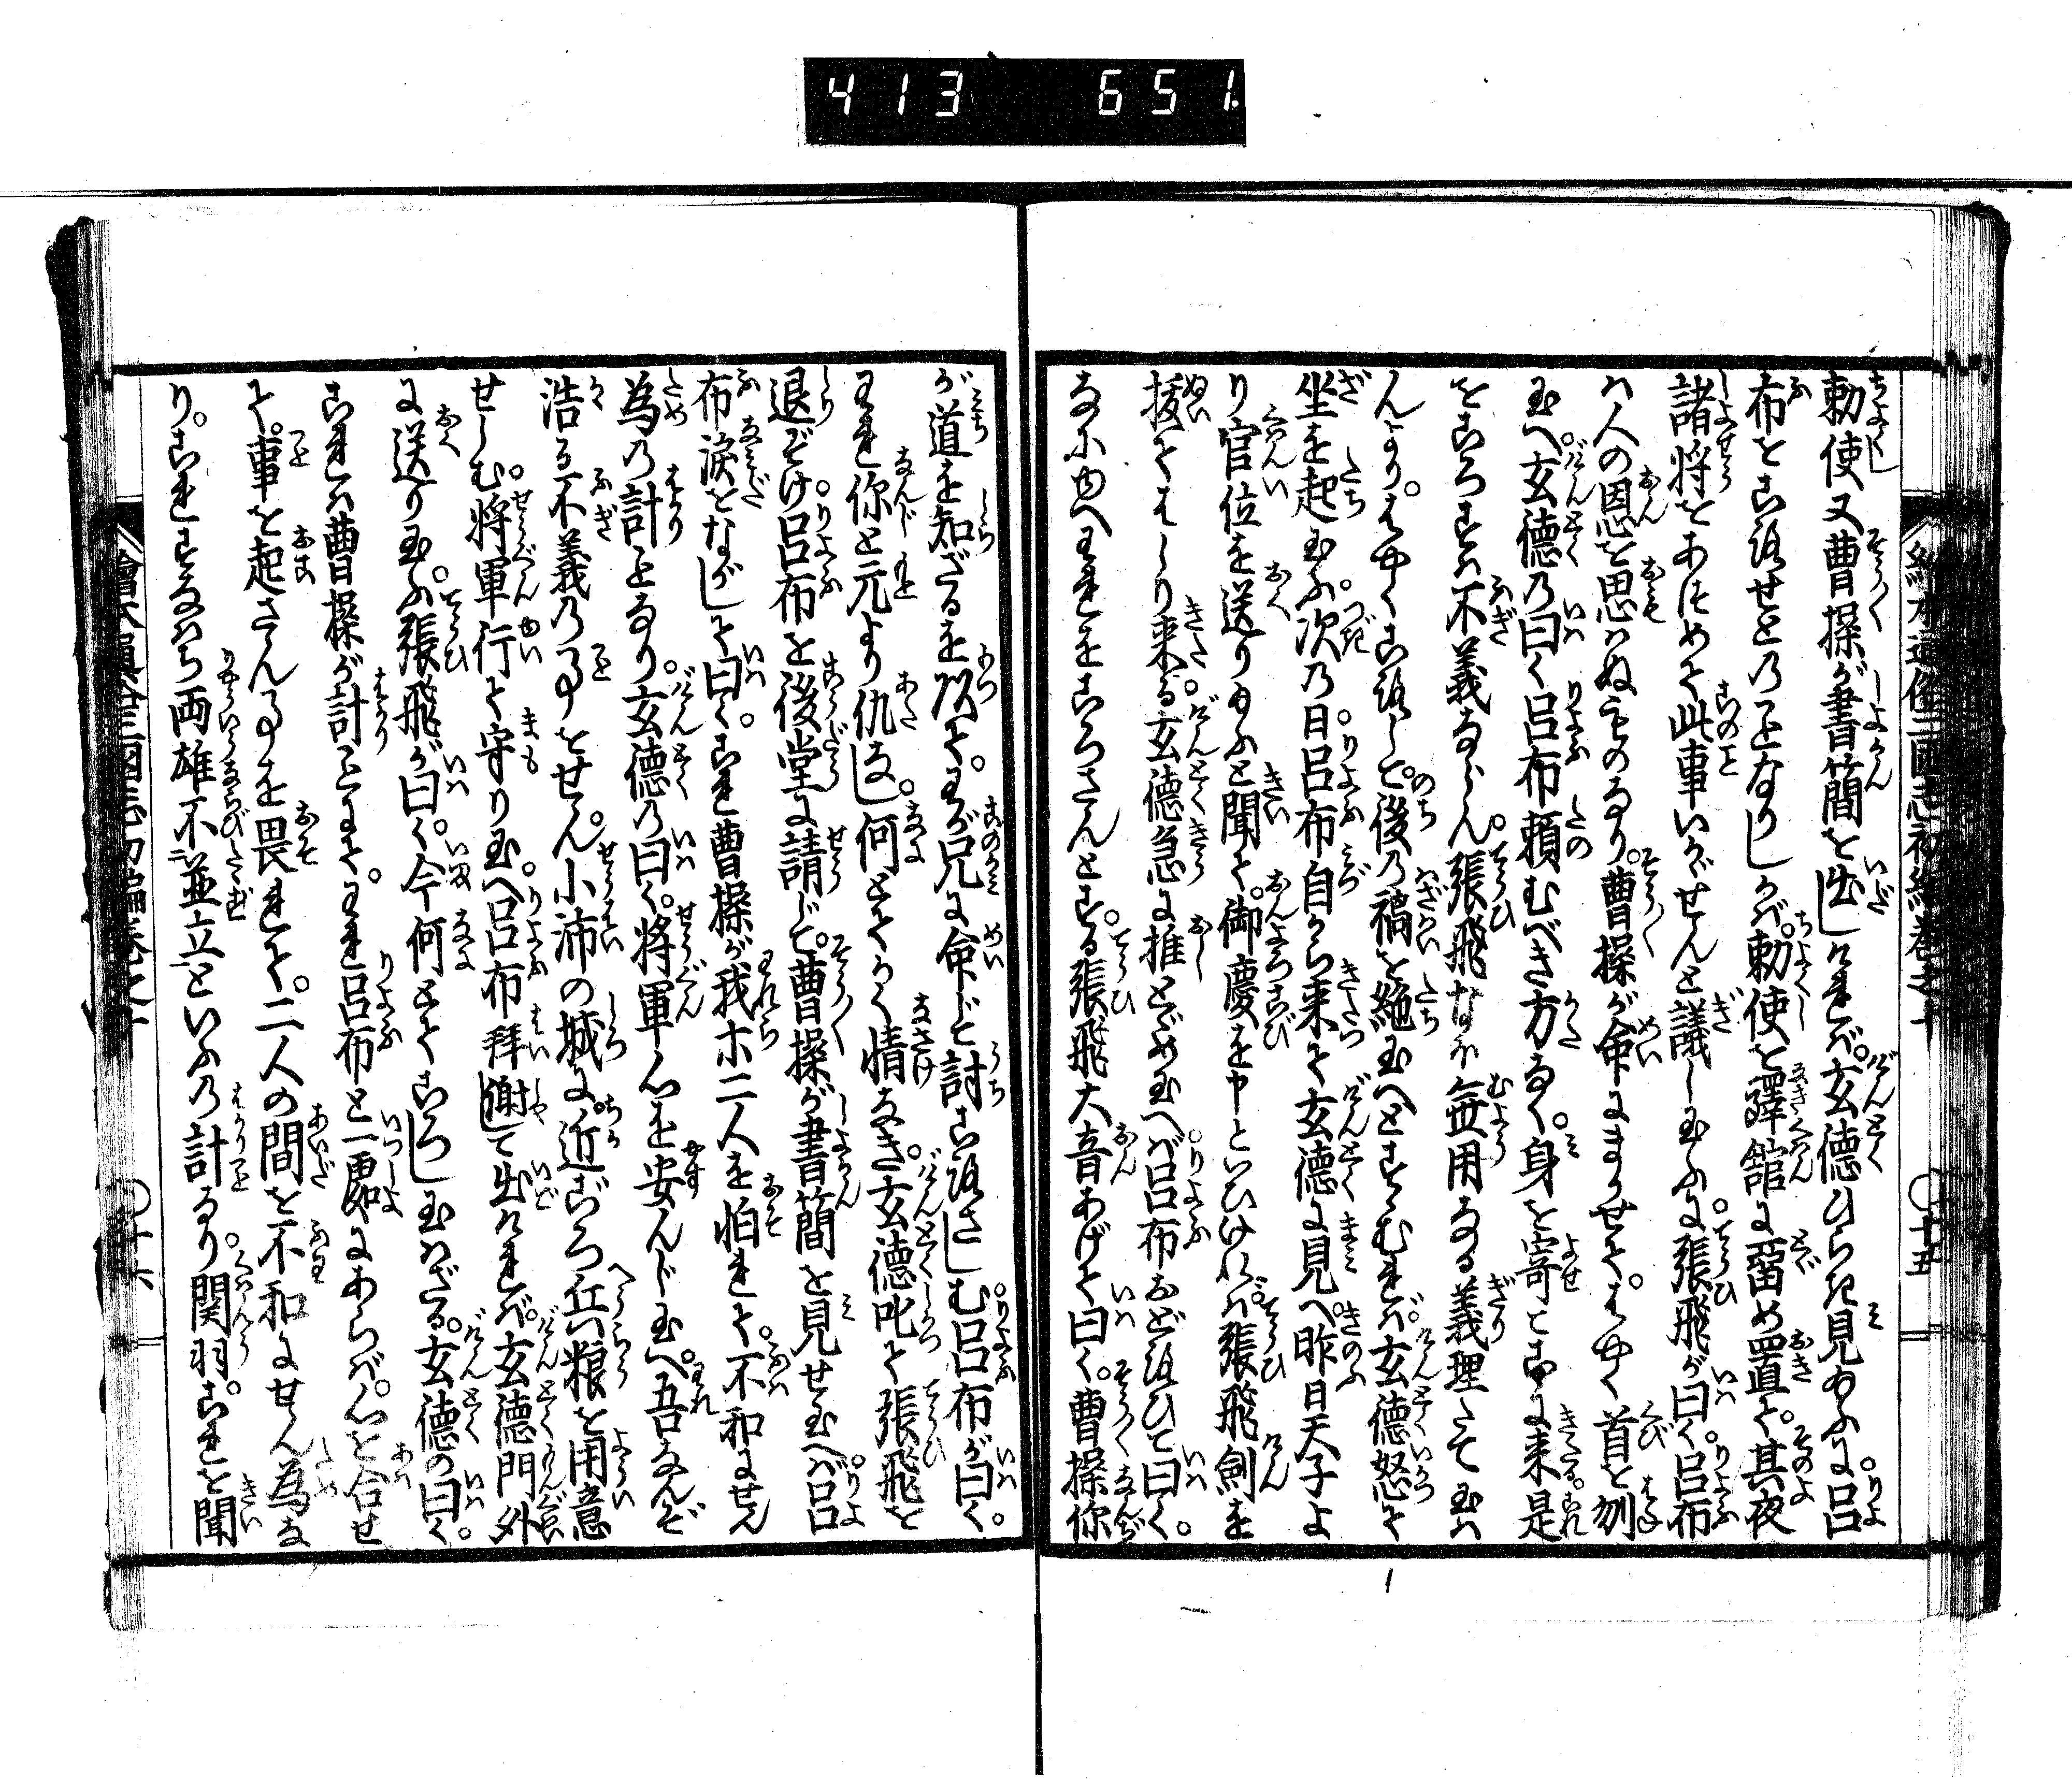 413 651.
繪本通俗三國志初編巻之十
〇十五
勅使又曹操が書簡を出しければ。玄德ひらき見給ふに呂
布をころせとの事なりしかば。勅使を驛舘に畱め置て。其夜
諸将をあつめて此事いかゞせんと議し玉ふに。張飛が曰く。呂布
は人の恩を思はぬものなり。曹操が命にまかせて。はやく首を刎
玉へ。玄德の曰く呂布頼むべき方なく。身を寄こゝに来る。是
をころすは不義ならん。張飛なほ無用なる義理たて玉は
んより。はやくころして。後の禍を絶玉へとすゝむれば。玄德怒て
坐を起玉ふ。次の日。呂布自から来て玄德に見へ。昨日天子よ
り官位を送り給ふと聞て。御慶を申といひければ。張飛劍を
拔てはしり来る。玄德急に推とゞめ玉へば。呂布おどろひて曰く。
なにゆへわれをころさんとする。張飛大音あげて曰く。曹操你
が道を知ざるを以て。わが兄に命じて討ころさしむ。呂布が曰く。
われ你と元より仇なし。何とてかく情なき。玄德叱て張飛を
退ぞけ。呂布を後堂に請じて。曹操が書簡を見せ玉へば。呂
布涙をながして曰く。これ曹操が我ホ二人を怕れて。不和にせん
為の計ことなり。玄德の曰く。将軍心を安んじ玉へ。吾なんぞ
浩る不義の事をせん。小沛の城に近づろ兵粮を用意
せしむ。将軍行て守り玉へ。呂布拜謝して出ければ。玄德門外
に送り玉ふ。張飛が曰く。今何とてころし玉はざる。玄德の曰く。
これは曹操が計ことにて。われ呂布と一處にあらば。心を合せ
て。事を起さん事を畏れて。二人の間を不和にせん為な
り。これすなはち両雄不並立といふの計なり。関羽。これを聞
繪本通俗三國志初編巻之十
〇十六